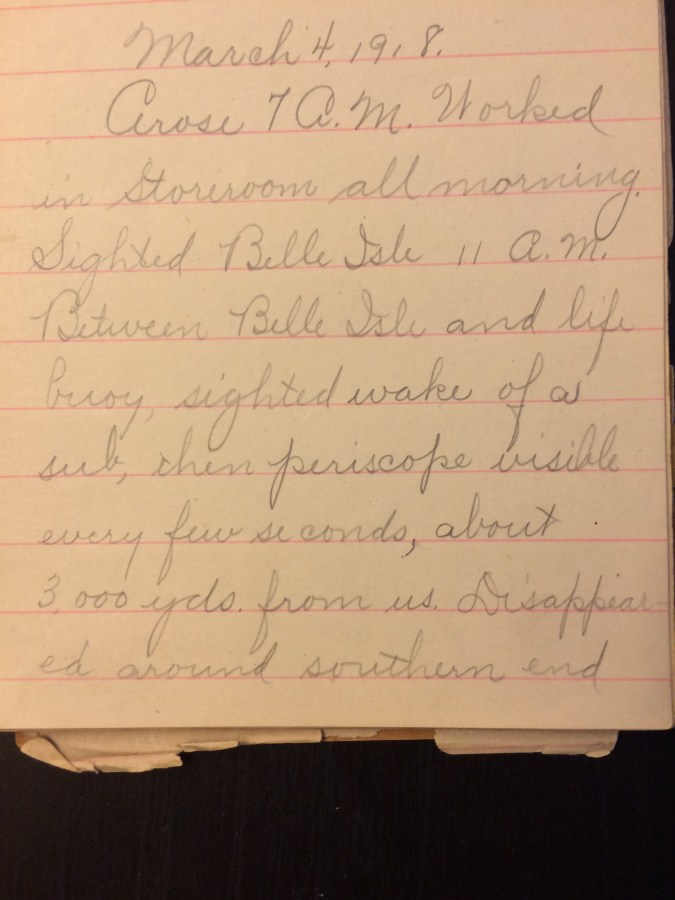 March 4, 1918.
Arose 7 A.M. Worked
in Storeroom all morning.
Sighted Belle Isle 11 A.M.
Between Belle Isle and life
buoy, sighted wake of a
sub, then periscope visible
every few seconds, about
3,000 yds. from us. Disappear-
ed around southern end